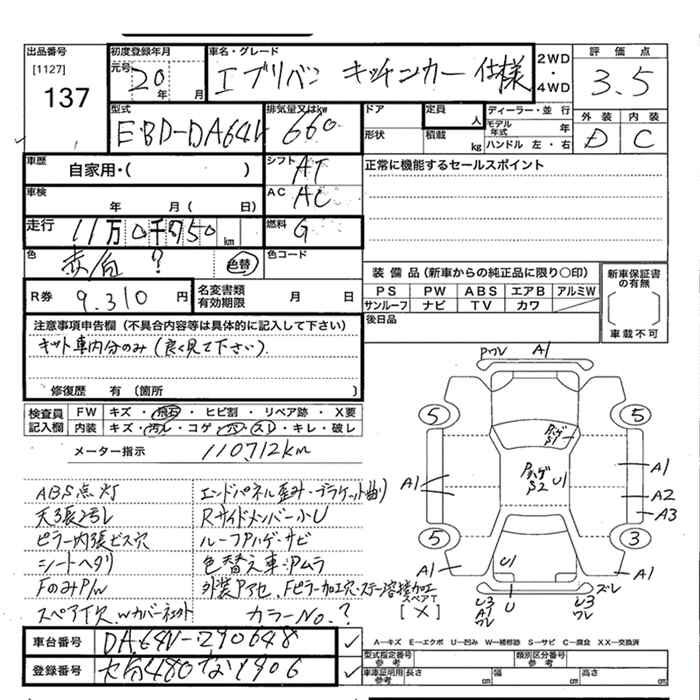 出品番号
[1127]
137
初度登録年月
元号
20
年 月
車名・グレード
エブリバン キッチンカー 仕様
2WD
・
4WD
評価点
3.5
型式
EBD-DA64V
排気量又はkw
660
ドア
形状
定員
人
積載
kg
ディーラー・並行
モデル
年式
年
ハンドル 左・右
外装
D
内装
C
車歴
自家用・( )
シフト
AT
正常に機能するセールスポイント
車検
年 月( 日)
AC
AC
走行
11万0千750km
燃料
G
色
赤/白 ?
色替
色コード
R券
9.310円
名変書類
有効期限
月 日
装備品(新車からの純正品に限り○印)
PS PW ABS エアB アルミW
サンルーフ ナビ TV カワ
新車保証書
の有無
車載不可
後日品
注意事項申告欄(不具合内容等は具体的に記入して下さい)
キット車内分のみ(良く見て下さい).
修復歴 有(箇所 )
検査員
記入欄
FW キズ・飛石・ヒビ割・リペア跡・X要
内装 キズ・汚レ・コゲ・穴・スレ・キレ・破レ
メーター指示
110712km
ABS点灯
天張2号レ
ピラー内張ビス穴
シートヘタリ
FのみP/W
スペア欠.Wカバー欠
エンドパネル歪み・ブラケット曲り
Rサイドメンバー小U
ルーフPハゲ・サビ
色替え車・Pムラ
外装Pアセ、Fピラー加工穴・ステー溶接加工
カラーNo.?
PMV A1
5
5
Pハゲ
S1
Pハゲ
S2
U1
A1
A1
A2
A3
5
3
A1
U1
A1
U3
A1
ワレ
U
U3
ワレ
ズレ
スペアT
[X]
車台番号
DA64V-290648
登録番号
480な1906
A-キズ E-エクボ U-凹み W-補修跡 S-サビ C-腐食 XX-交換済
型式指定番号
参考
類別区分番号
参考
車庫証明用
参考
長さ cm
幅 cm
高さ cm